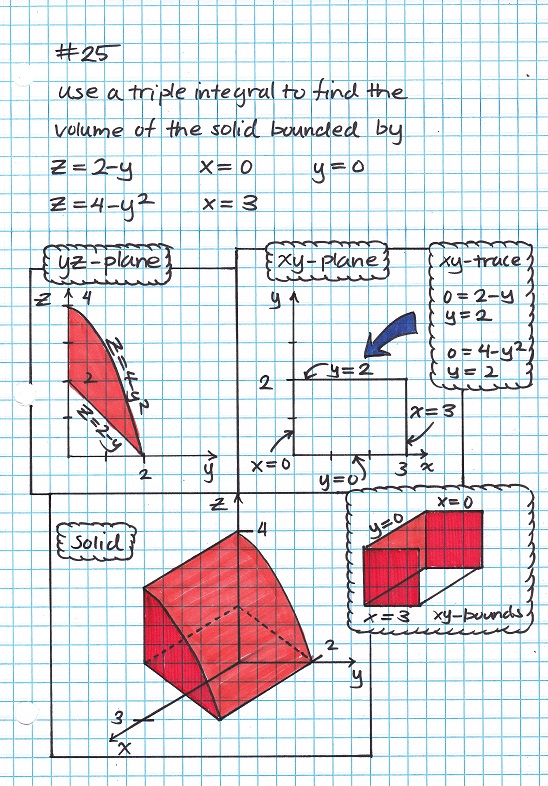 #25
use a triple integral to find the
volume of the solid bounded by
z = 2-y x = 0 y = 0
z = 4-y² x = 3
yz-plane
z 4
2
z = 4-y²
z = 2-y
2 y
xy-plane
y
2
y = 2
x = 3
x = 0
y = 0
3 x
xy-trace
0 = 2-y
y = 2
0 = 4-y²
y = 2
Solid
z
4
2
y
3
x
x = 0
y = 0
x = 3 xy-bounds